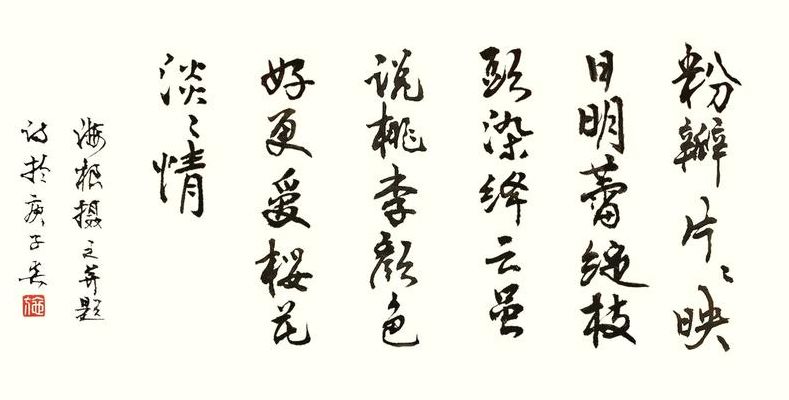 粉瓣片〻映
日明蕾绽枝
頭染绛云虽
说桃李颜色
好更爱樱花
淡〻情
海根摄之并题
诗於庚子春